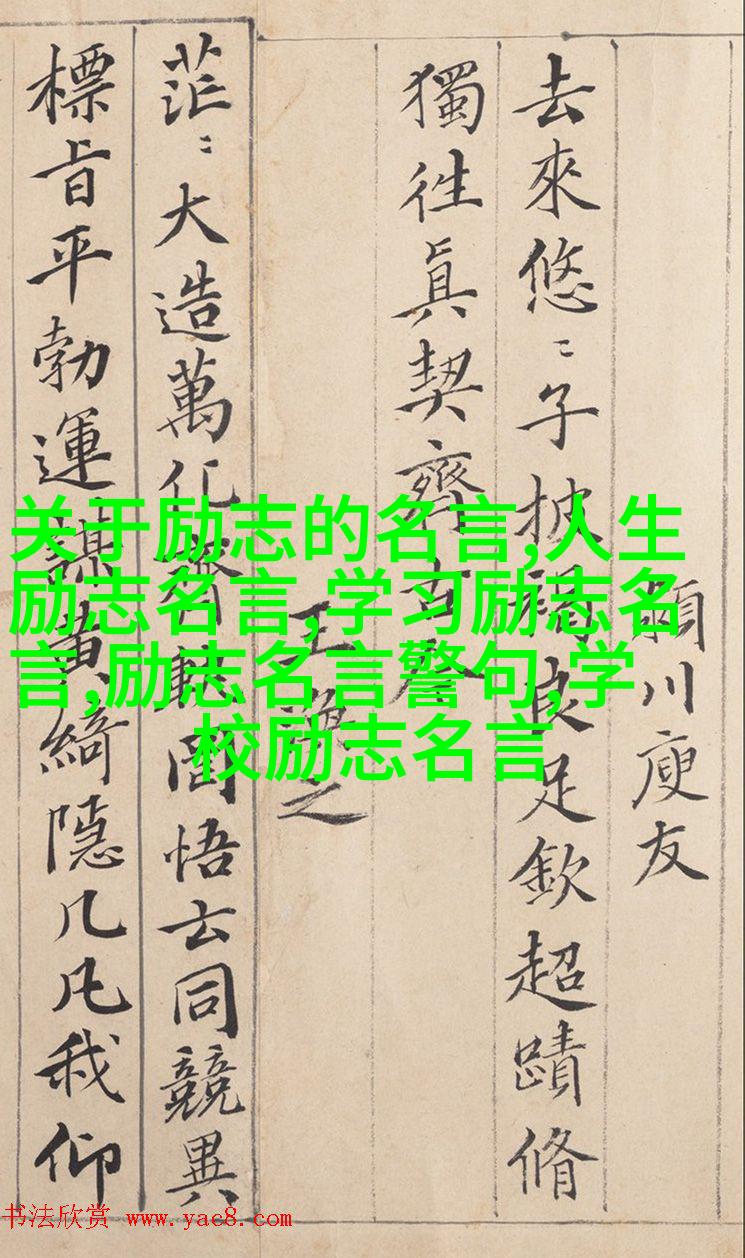 川庾友
去來悠〻子披褐良足欽超蹟脩
獨徃眞契齊古今
王之
茫〻大造萬化齊軌罔悟云同競異
標旨平勃運謀黃綺隱几凡我仰
关于励志的名言,人生
励志名言,学习励志名
言,励志名言警句,学
校励志名言
书法欣赏 www.yac8.com